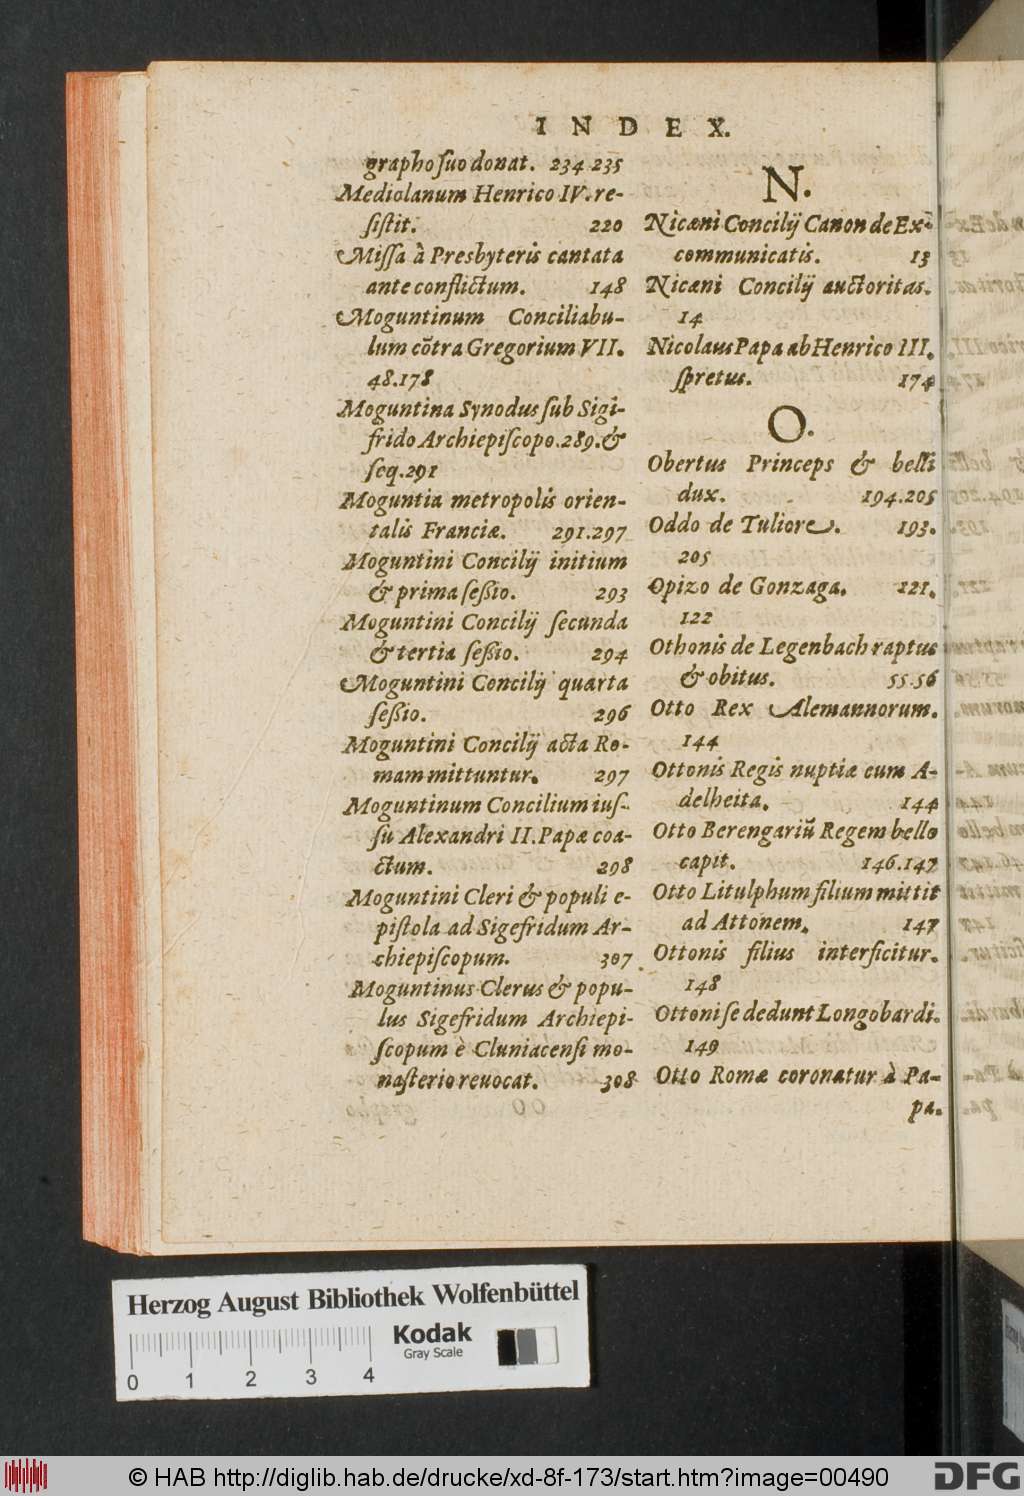 INDEX.
grapho ſuo donat. 234 235
Mediolanum Henrico IV. re-
ſiſtit. 220
Miſſa à Presbyteris cantata
ante conflictum. 148
Moguntinum Conciliabu-
lum cõtra Gregorium VII.
48.178
Moguntina Synodus ſub Sigi-
frido Archiepiſcopo. 289. &
ſeq. 291
Moguntia metropolis orien-
talis Franciæ. 291.297
Moguntini Concilij initium
& prima ſeßio. 293
Moguntini Concilij ſecunda
& tertia ſeßio. 294
Moguntini Concilij quarta
ſeßio. 296
Moguntini Concilij acta Ro-
mam mittuntur. 297
Moguntinum Concilium iuſ-
ſu Alexandri II. Papæ coa-
ctum. 298
Moguntini Cleri & populi e-
piſtola ad Sigefridum Ar-
chiepiſcopum. 307
Moguntinus Clerus & popu-
lus Sigefridum Archiepi-
ſcopum è Cluniacenſi mo-
naſterio reuocat. 308
N.
Nicæni Concilij Canon de Ex-
communicatis. 13
Nicæni Concilij auctoritas.
14
Nicolaus Papa ab Henrico III.
ſpretus. 174
O.
Obertus Princeps & belli
dux. 194.205
Oddo de Tuliore. 193.
205
Opizo de Gonzaga. 121.
122
Othonis de Legenbach raptus
& obitus. 55.56
Otto Rex Alemannorum.
144
Ottonis Regis nuptiæ cum A-
delheita. 144
Otto Berengariũ Regem bello
capit. 146.147
Otto Litulphum filium mittit
ad Attonem. 147
Ottonis filius interficitur.
148
Ottoni ſe dedunt Longobardi.
149
Otto Romæ coronatur à Pa-
pa.
Herzog August Bibliothek Wolfenbüttel
Kodak
Gray Scale
0 1 2 3 4
© HAB http://diglib.hab.de/drucke/xd-8f-173/start.htm?image=00490
DFG